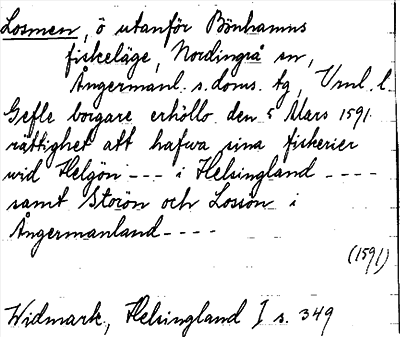 Losmen, ö utanför Bönhamns
fiskeläge, Nordingrå sn,
Ångermanl. s. doms. tg, Vrnl. l.
Gefle borgare erhöllo den 5 Mars 1591
rättighet att hafwa sina fisherier
wid Helgön --- i Helsingland ----
samt Storön och Lossön i
Ångermanland ----
(1591)
Widmark, Helsingland I s. 349